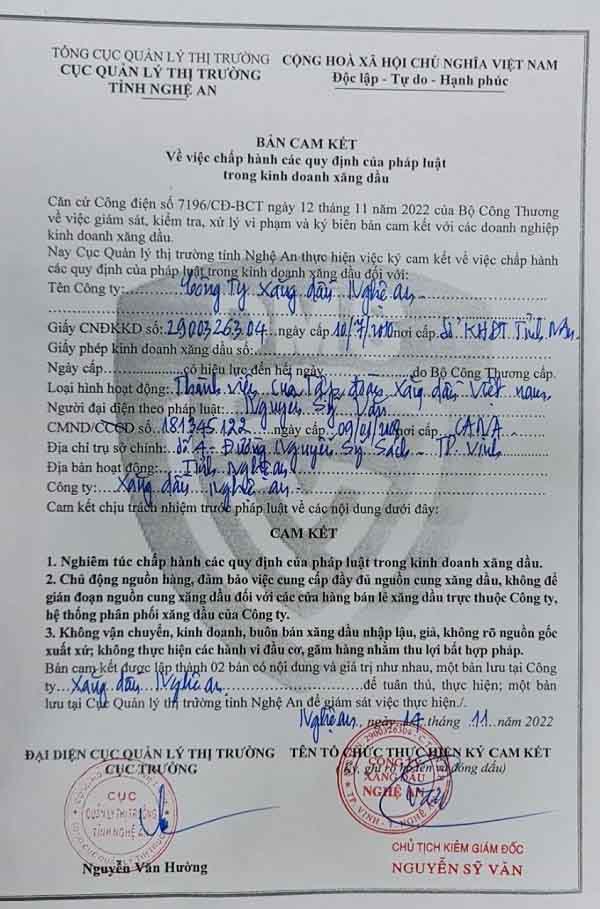 TỔNG CỤC QUẢN LÝ THỊ TRƯỜNG
CỤC QUẢN LÝ THỊ TRƯỜNG
TỈNH NGHỆ AN
CỘNG HOÀ XÃ HỘI CHỦ NGHĨA VIỆT NAM
Độc lập - Tự do - Hạnh phúc
BẢN CAM KẾT
Về việc chấp hành các quy định của pháp luật
trong kinh doanh xăng dầu
Căn cứ Công điện số 7196/CĐ-BCT ngày 12 tháng 11 năm 2022 của Bộ Công Thương
về việc giám sát, kiểm tra, xử lý vi phạm và ký biên bản cam kết với các doanh nghiệp
kinh doanh xăng dầu.
Nay Cục Quản lý thị trường tỉnh Nghệ An thực hiện việc ký cam kết về việc chấp hành
các quy định của pháp luật trong kinh doanh xăng dầu đối với:
Tên Công ty: Công ty Xăng dầu Nghệ an
Giấy CNĐKKD số: 2900326304 ngày cấp 10/7/2010 nơi cấp Sở KHĐT Tỉnh N/An
Giấy phép kinh doanh xăng dầu số:
Ngày cấp có hiệu lực đến hết ngày do Bộ Công Thương cấp.
Loại hình hoạt động: Thành viên của Tập đoàn Xăng dầu Việt nam
Người đại diện theo pháp luật: Nguyễn Sỹ Văn
CMND/CCCD số 181345122 ngày cấp nơi cấp CANA
Địa chỉ trụ sở chính: Số 4 - Đường Nguyễn Sỹ Sách - TP. Vinh
Địa bàn hoạt động: Tỉnh Nghệ an
Công ty: Xăng dầu Nghệ an
Cam kết chịu trách nhiệm trước pháp luật về các nội dung dưới đây:
CAM KẾT
1. Nghiêm túc chấp hành các quy định của pháp luật trong kinh doanh xăng dầu.
2. Chủ động nguồn hàng, đảm bảo việc cung cấp đầy đủ nguồn cung xăng dầu, không để
gián đoạn nguồn cung xăng dầu đối với các cửa hàng bán lẻ xăng dầu trực thuộc Công ty,
hệ thống phân phối xăng dầu của Công ty.
3. Không vận chuyển, kinh doanh, buôn bán xăng dầu nhập lậu, giả, không rõ nguồn gốc
xuất xứ; không thực hiện các hành vi đầu cơ, găm hàng nhằm thu lợi bất hợp pháp.
Bản cam kết được lập thành 02 bản có nội dung và giá trị như nhau, một bản lưu tại Công
ty Xăng dầu Nghệ an để tuân thủ, thực hiện; một bản
lưu tại Cục Quản lý thị trường tỉnh Nghệ An để giám sát việc thực hiện./.
Nghệ an, ngày 14 tháng 11 năm 2022
ĐẠI DIỆN CỤC QUẢN LÝ THỊ TRƯỜNG
CỤC TRƯỞNG
CỤC
QUẢN LÝ THỊ TRƯỜNG
TỈNH NGHỆ AN
Nguyễn Văn Hường
TÊN TỔ CHỨC THỰC HIỆN KÝ CAM KẾT
(Ký, ghi rõ họ tên và đóng dấu)
CÔNG TY
XĂNG DẦU
NGHỆ AN
CHỦ TỊCH KIÊM GIÁM ĐỐC
NGUYỄN SỸ VĂN